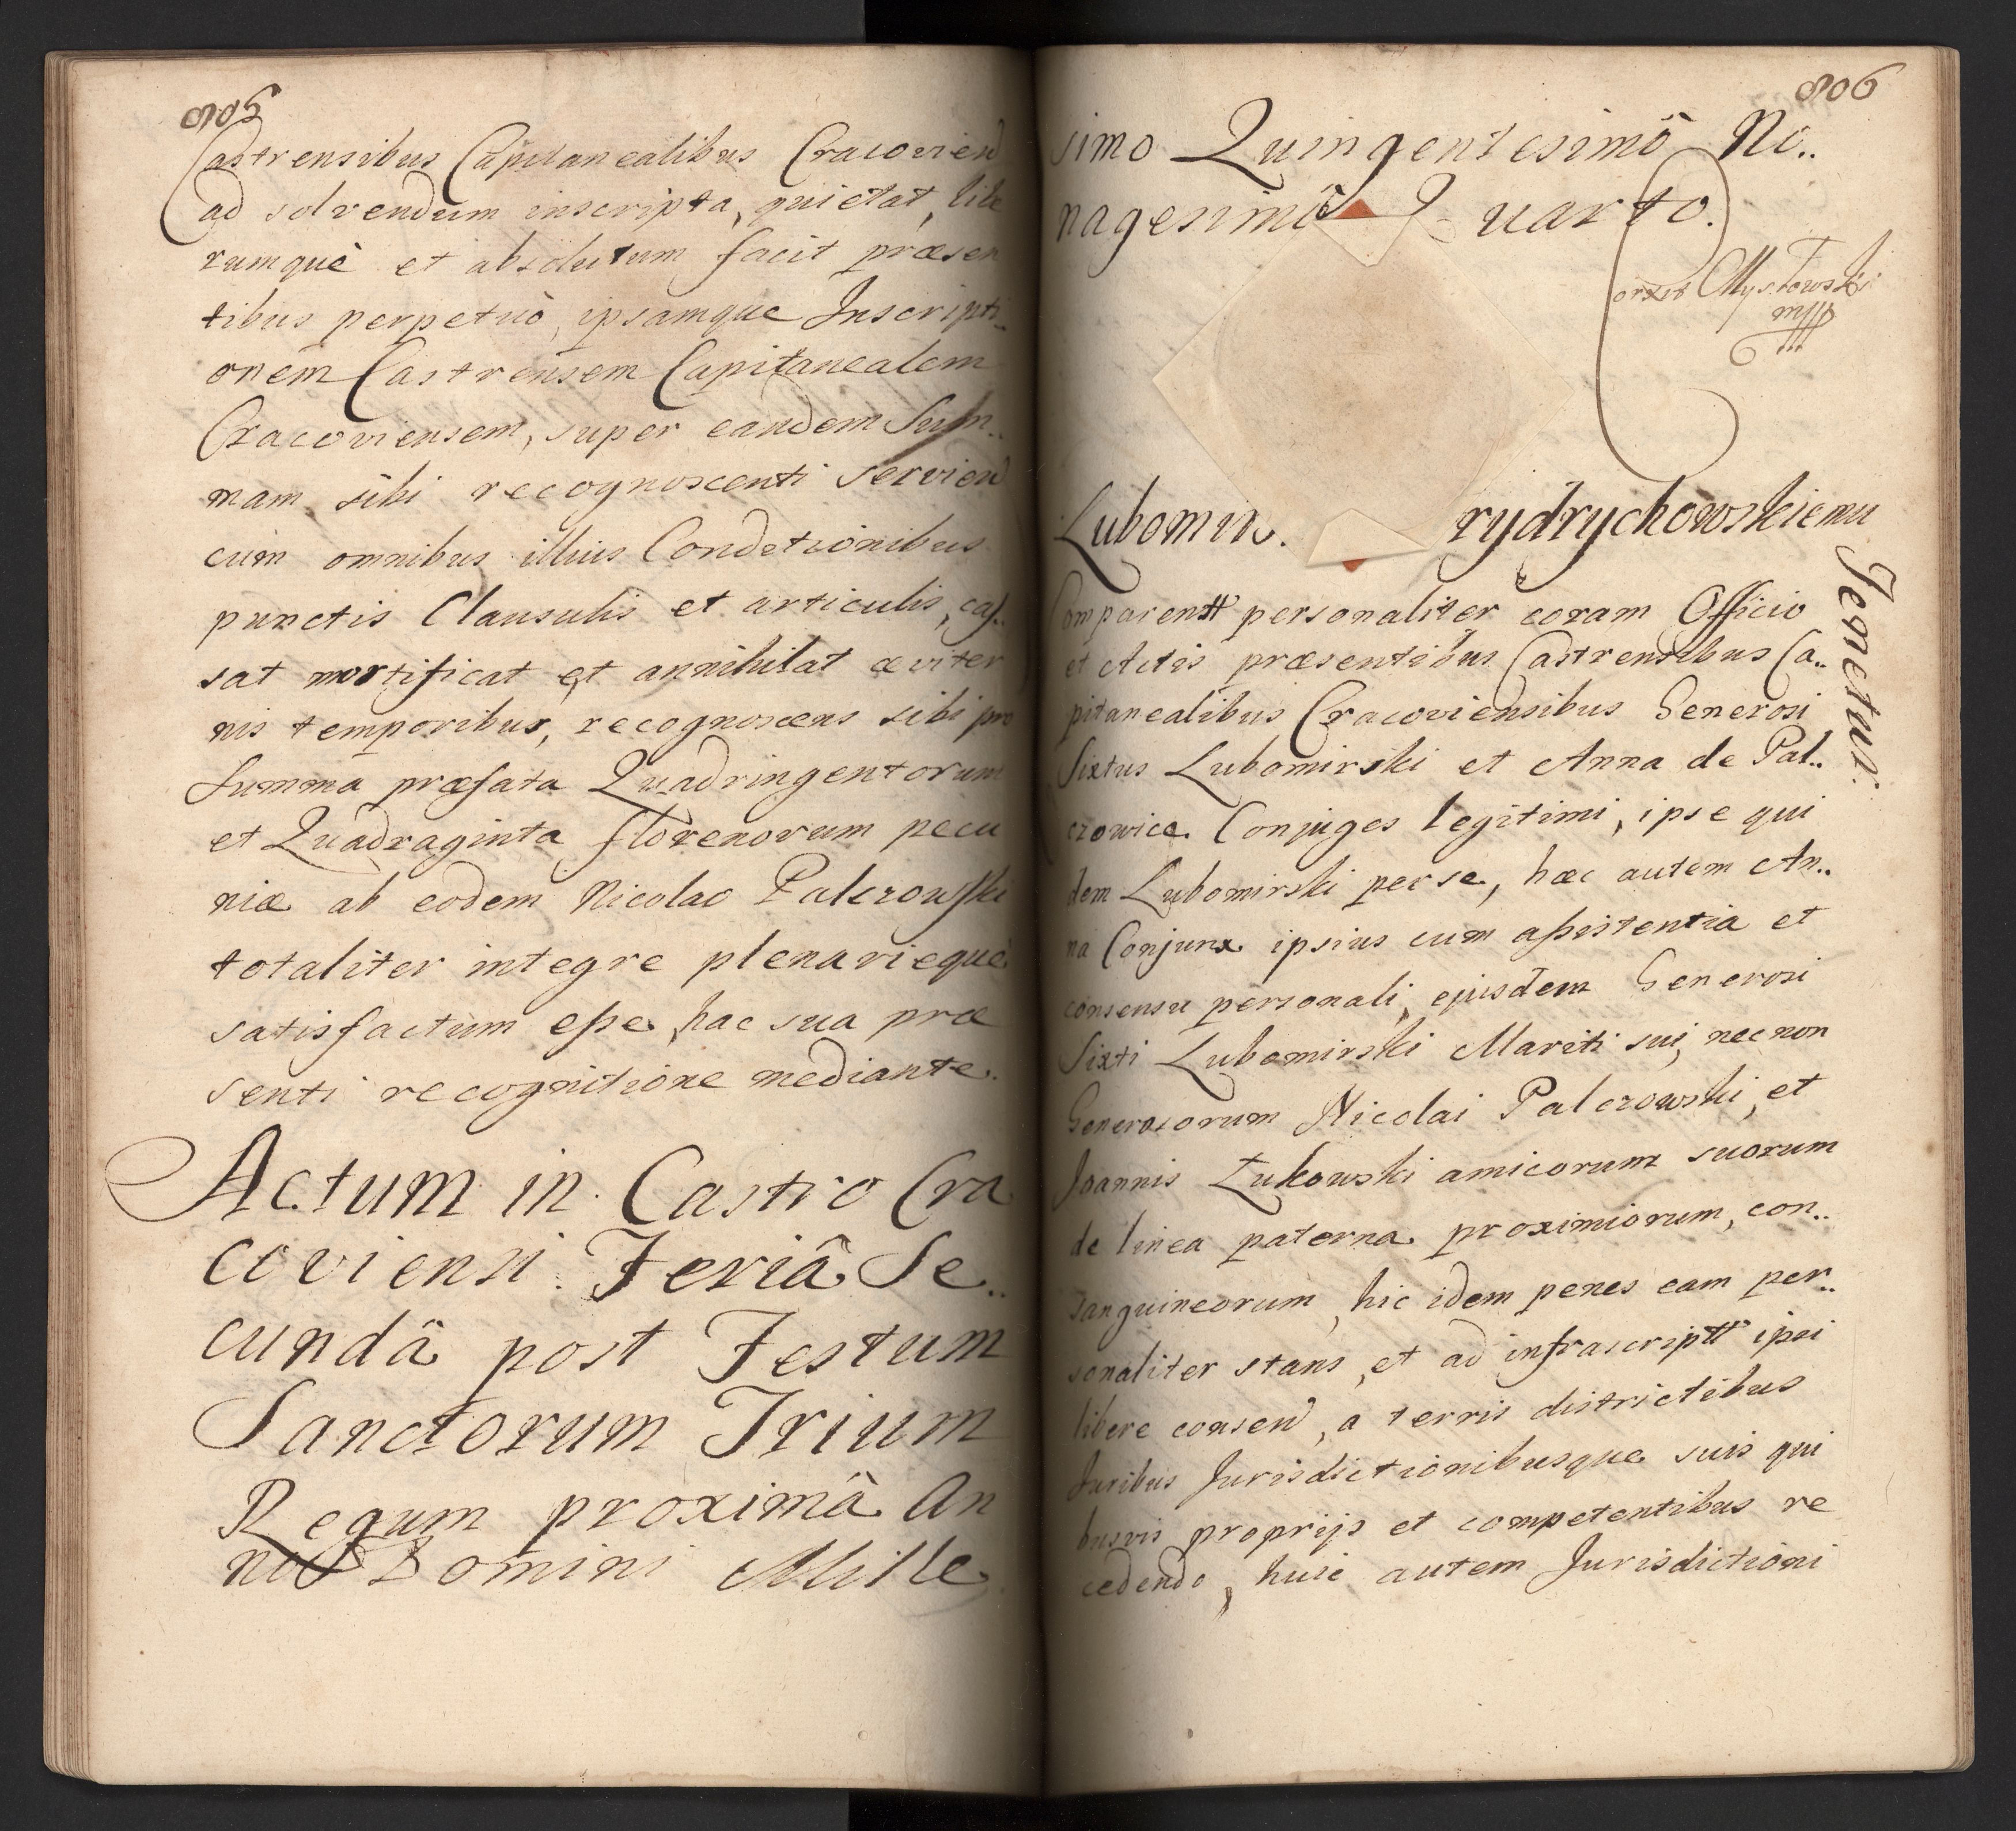 805
Castrensibus Capitanealibus Cracovien
ad solvendum inscripta, quietat, libe
rumque et absolutum facit præsen
tibus perpetuò, ipsamque Inscripti..
onem Castrensem Capitanealem
Cracoviensem, super eandem Sum..
mam sibi recognoscenti servien
cum omnibus illius Condetionibus
punctis Clausulis et articulis, cas..
sat mortificat et annihilat æviter
nis temporibus, recognoscens sibi pro
Summa præfata Quadringentorum
et Quadraginta florenorum pecu
niæ ab eodem Nicolao Palczowski
totaliter integre plenarieque
satisfactum esse hac sua præ
senti recognitione mediante.
Actum in Castro Cra
coviensi Feriâ Se..
cundâ post Festum
Sanctorum Trium
Regum proximâ An
no Domini Mille
806
simo Quingentesimô No..
nagesimô Quarto.
Mystowski
mpp
Lubomirs. rydrychowskiemu
Tenetur.
Comparentt personaliter coram Officio
et Actis præsentibus Castrensibus Ca..
pitanealibus Cracoviensibus Generosi
Sixtus Lubomirski et Anna de Pal..
czowice Conjuges legitimi, ipse qui
dem Lubomirski per se, hæc autem An..
na Conjunx ipsius cum assistentia et
consensu personali, ejusdem Generosi
Sixti Lubomirski Mariti sui, nec non
Generosorum Nicolai Palczowski, et
Joannis Łukowski amicorum suorum
de linea paterna proximiorum, con..
sanguineorum, hic idem penes eam per..
sonaliter stans, et ad infrascriptt ipsi
libere consen, a terris districtibus
Juribus Jurisdictionibusque suis qui
busvis proprijs et competentibus re
cedendo, huic autem Jurisdictioni